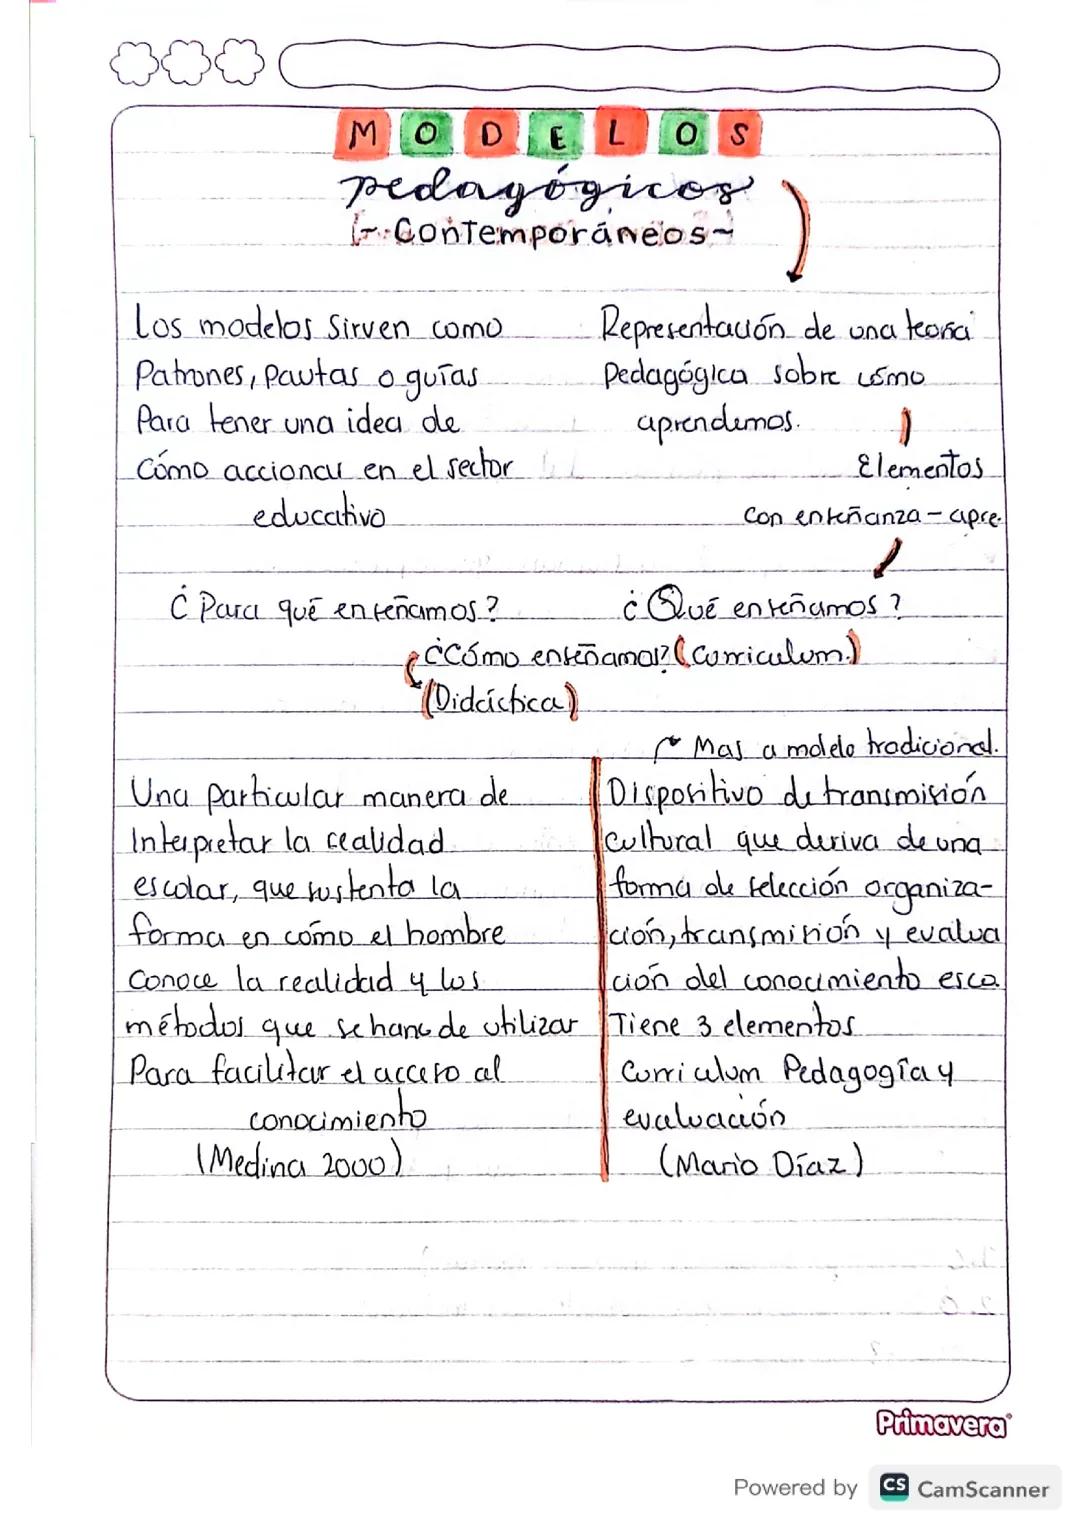 MODELOS
pedagógicos
~ Contemporáneos ~
Los modelos sirven como
Patrones, pautas o guías
Para tener una idea de
cómo accionar en el sector
educativo
Representación de una teoría
Pedagógica sobre cómo
aprendemos.
Elementos
con enseñanza - apre.
¿Para qué enseñamos?
¿Qué enseñamos?
¿Cómo enseñamos? (Curriculum.)
(Didáctica)
Mas a modelo tradicional.
Una particular manera de
Interpretar la realidad
escolar, que sustenta la
forma en cómo el hombre
conoce la realidad y los
métodos que se han de utilizar
Para facilitar el acceso al
conocimiento
(Medina 2000)
Dispositivo de transmisión
cultural que deriva de una
forma de selección organiza-
ción, transmisión y evalua
ción del conocimiento esco.
Tiene 3 elementos
Curriculum Pedagogía y
evaluación
(Mario Díaz)
Primavera
Powered by CS CamScanner